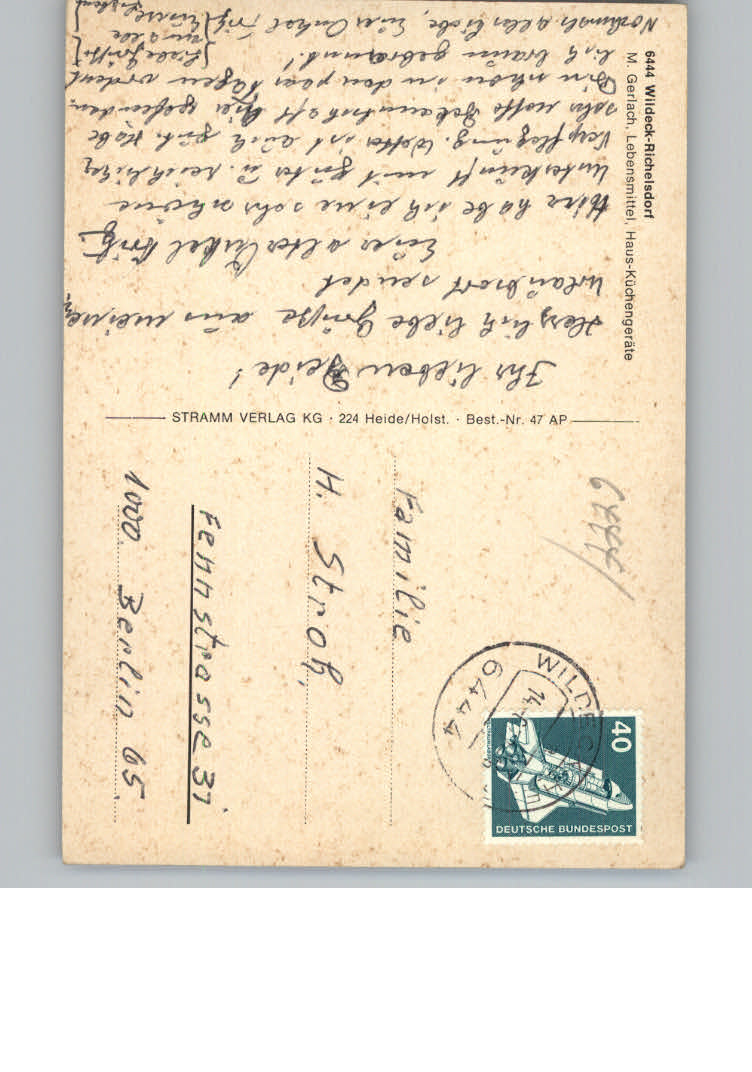 6444 Wildeck-Richelsdorf
M. Gerlach, Lebensmittel, Haus-Küchengeräte
Ihr lieben Beide!
Herzlich liebe Grüße aus meinem
Urlaubsort sendet
Euer alter Onkel Fritz.
Hier habe ich eine sehr schöne
Unterkunft mit guter u. reichlicher
Verpflegung. Wetter ist auch gut. Habe
sehr nette Bekanntschaft hier gefunden.
Bin schon in den paar Tagen ordent
lich braun gebrannt!
Nochmals alles Liebe, Euer Onkel Fritz
Liebe Grüße
an
STRAMM VERLAG KG · 224 Heide/Holst. · Best.-Nr. 47 AP
Familie
H. Stroh,
Fennstrasse 31
1000 Berlin 65.
40
DEUTSCHE BUNDESPOST
WILDECK
6444
14.